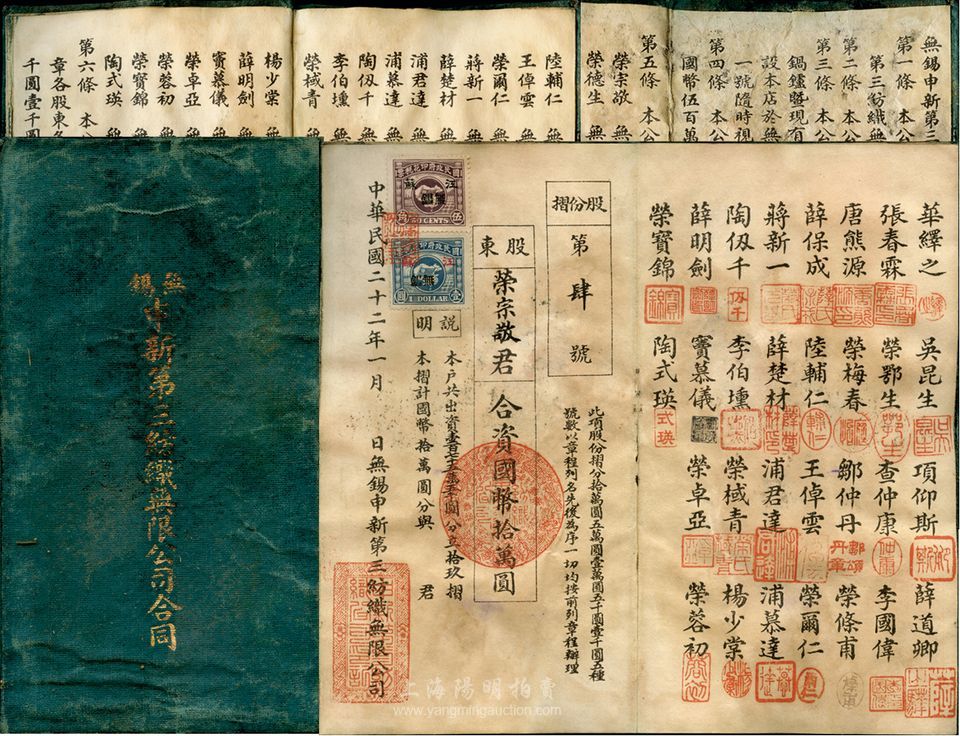 無錫申新第三
第一條 本公
第三紡織無
第二條 本公
第三條 本公
鍋鑪暨現有
設本店於無
一號隨時視
第四條 本公
國幣伍百萬
第五條 本公
榮宗敬 無
榮德生 無
陸輔仁
王倬雲 無
榮爾仁 無
蔣新一 無
薛楚材 無
浦君達 無
浦慕達 無
陶仭千 無
李伯壎 無
榮棫青 無
楊少棠
薛明劍 無
竇慕儀 無
榮卓亞 無
榮蓉初 無
榮寶錦 無
陶式瑛 無
第六條 本公
章各股東各
千圓壹千圓
無錫
申新第三紡織無限公司合同
華繹之 吳昆生 項仰斯 薛道卿
張春霖 榮鄂生 查仲康 李國偉
唐熊源 榮梅春 鄒仲丹 榮條甫
薛保成 陸輔仁 王倬雲 榮爾仁
蔣新一 薛楚材 浦君達 浦慕達
陶仭千 李伯壎 榮棫青 楊少棠
薛明劍 竇慕儀 榮卓亞 榮蓉初
榮寶錦 陶式瑛
股份摺
第肆號
此項股份摺分拾萬圓五萬圓壹萬圓五千圓壹千圓五種
號數以章程列名先後為序一切均按前列章程辦理
股東
榮宗敬君 合資國幣拾萬圓
說明
本戶共出資壹百七十五萬五千圓分立拾玖摺
本摺計國幣拾萬圓分與 君
中華民國二十二年一月 日無錫申新第三紡織無限公司
國民政府印花稅票
江蘇
無錫
伍角
50 CENTS
國民政府印花稅票
江蘇
無錫
壹圓
1 DOLLAR
上海陽明拍賣
www.yangmingauction.com